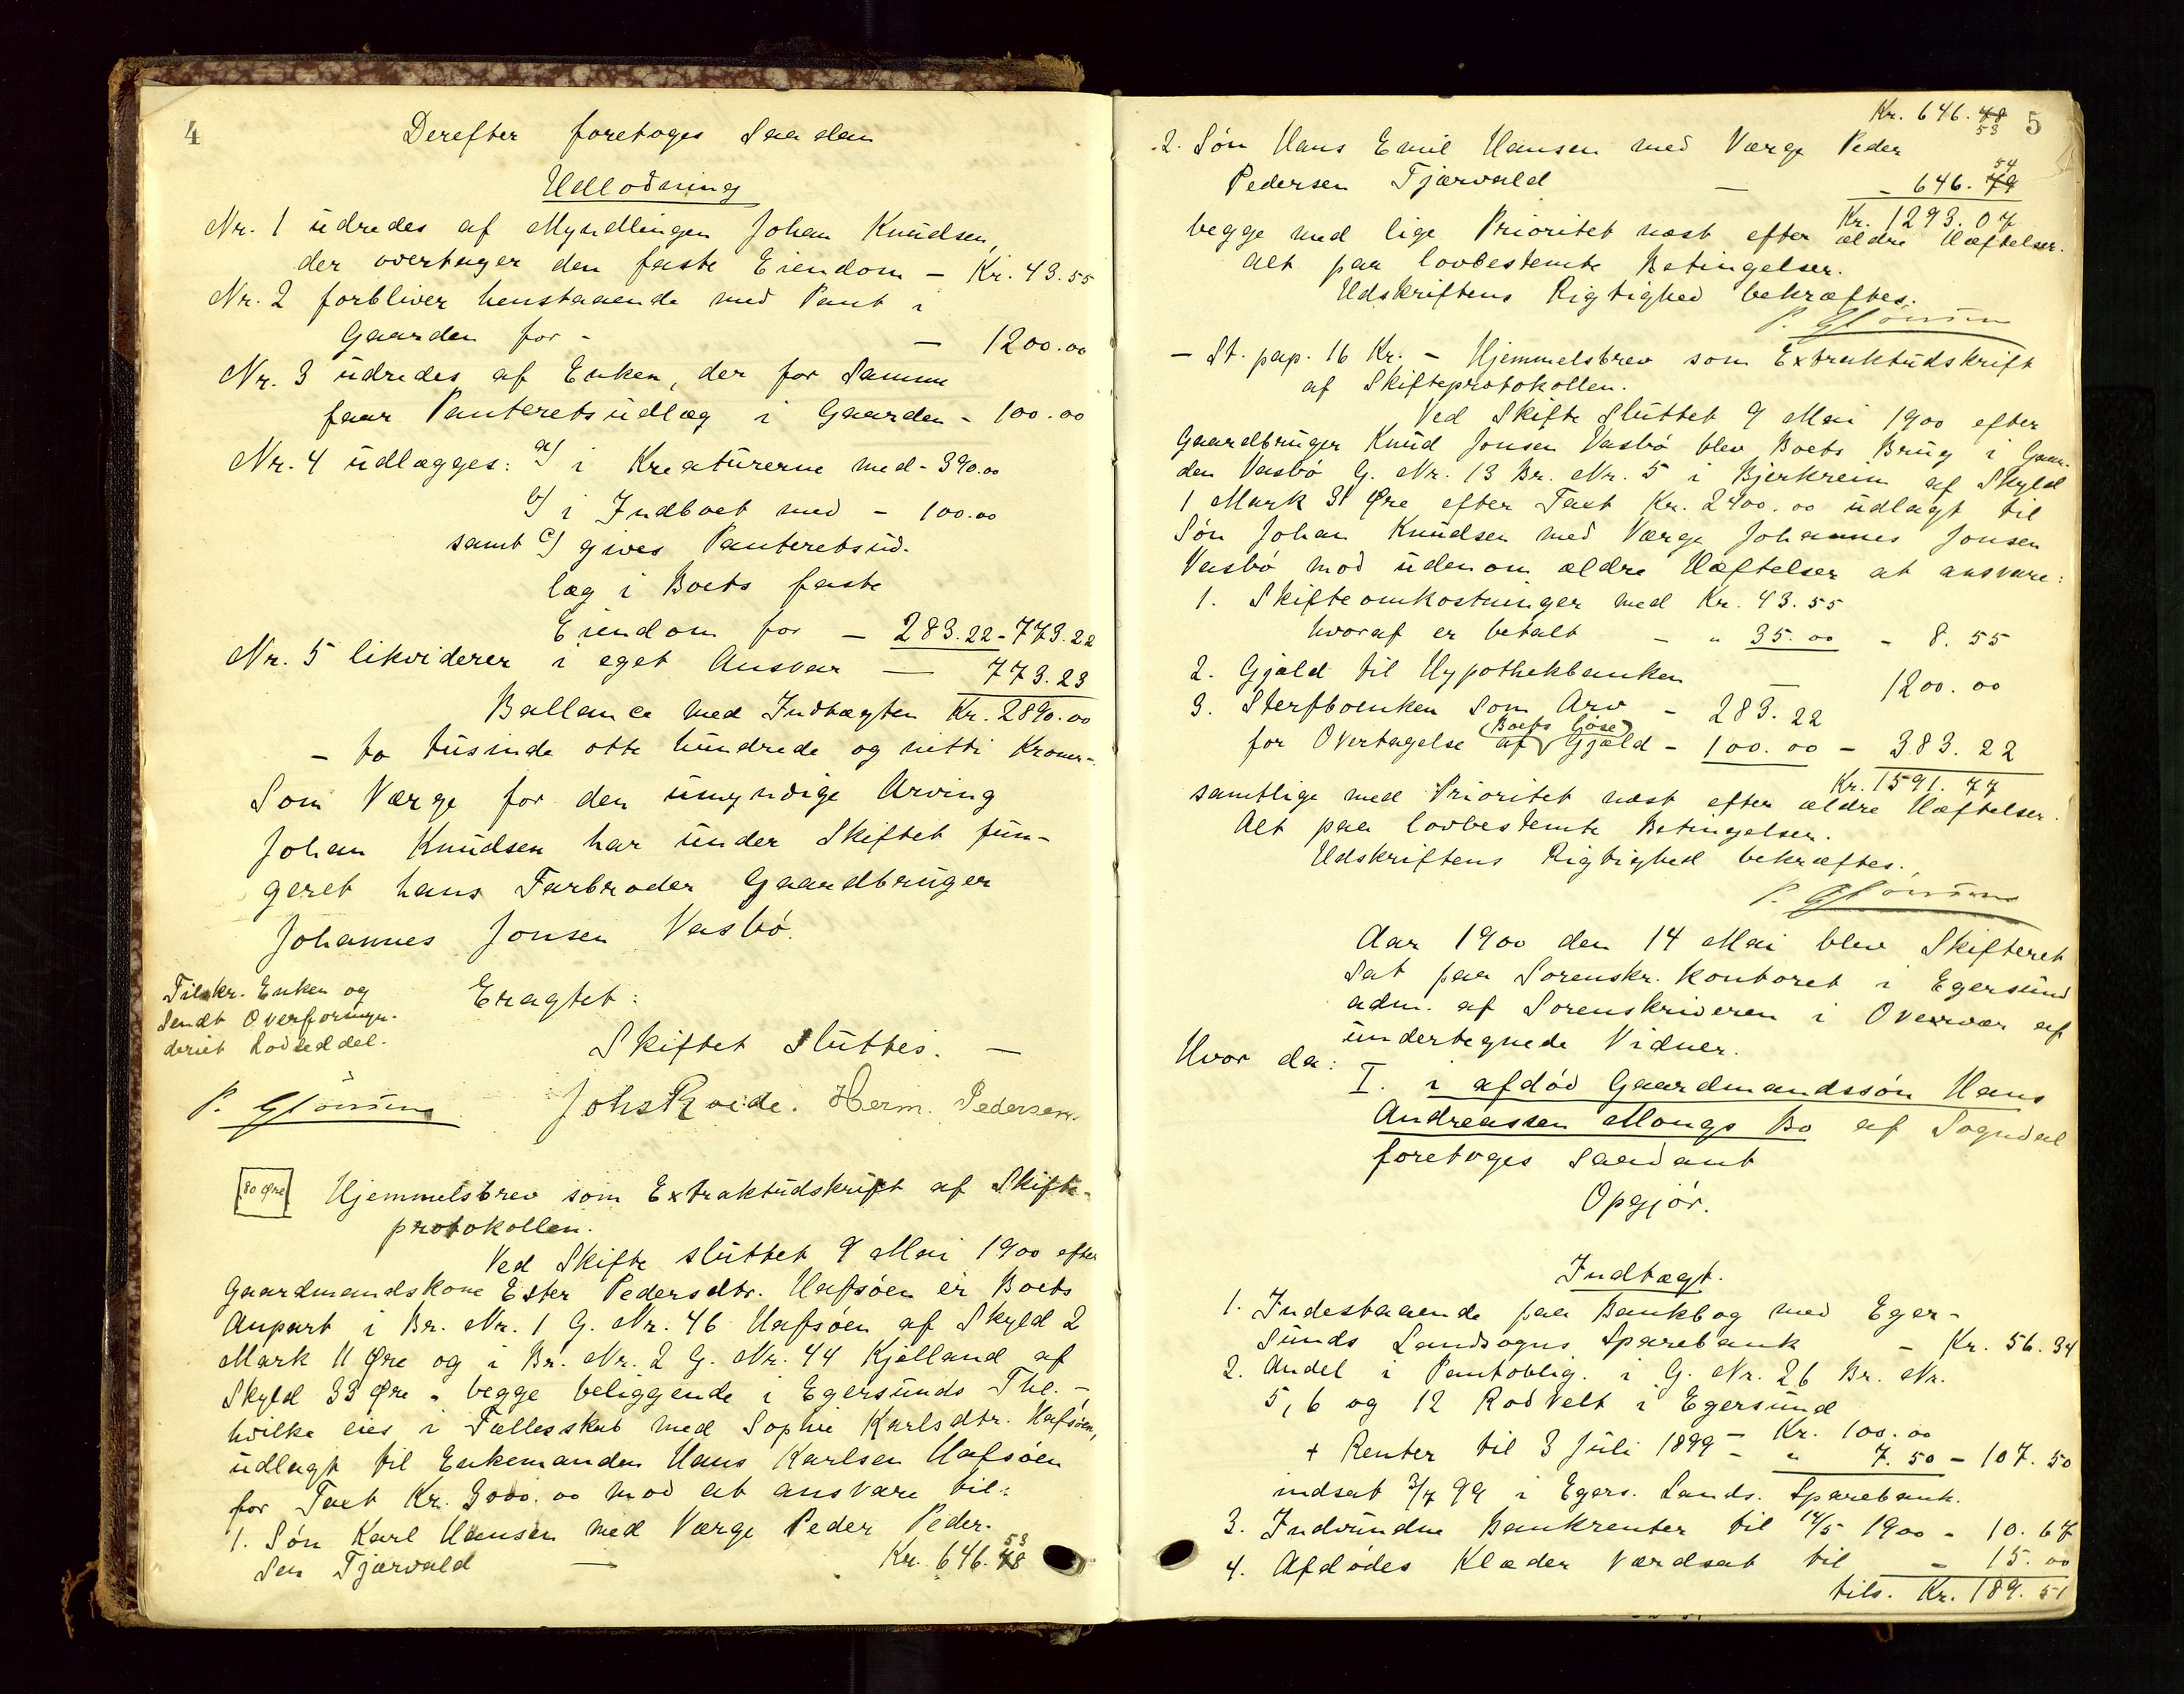 4
Derefter foretoges saadan
Udlodning
Nr. 1 udredes af Myndlingen Johan Knudsen,
der overtager den faste Eiendom – Kr. 43.55
Nr. 2 forbliver henstaaende med Pant i
Gaarden for – – 1200.00
Nr. 3 udredes af Enken, der for samme
faar Panteretsudlæg i Gaarden – 100.00
Nr. 4 udlægges: a) i Kreaturerne med – 390.00
b) i Indboet med – 100.00
samt c) gives Panteretsud-
læg i Boets faste
Eiendom for – 283.22 – 773.22
Nr. 5 likviderer i eget Ansvar — 773.23
Ballance med Indtægten Kr. 2890.00
– to tusinde otte hundrede og nitti Kroner –.
Som Værge for den umyndige Arving
Johan Knudsen har under Skiftet fun-
geret hans Farbroder Gaardbruger
Johannes Jonsen Vasbø.
Tilskr. Enken og
sendt Overformyn-
deriet Lodseddel.
Eragtet:
Skiftet sluttes. —
P. Johs Roide. Herm. Pedersen.
80 Øre
Hjemmelsbrev som Extraktudskrift af Skifte-
protokollen.
Ved Skifte sluttet 9 Mai 1900 efter
Gaardmandskone Ester Pedersdtr. Hafsøen er Boets
Anpart i Br. Nr. 1 G. Nr. 46 Hafsøen af Skyld 2
Mark 11 Øre og i Br. Nr. 2 G. Nr. 44 Kjelland af
Skyld 33 Øre – begge beliggende i Egersunds Thl. –
hvilke eies i Fællesskab med Sophie Karlsdtr. Hafsøen,
udlagt til Enkemanden Hans Karlsen Hafsøen
for Taxt Kr. 3000.00 mod at ansvare til:
1. Søn Karl Hansen med Værge Peder Peder-
sen Tjærvald — Kr. 646.78 53
5
Kr. 646.78 53
2. Søn Hans Emil Hansen med Værge Peder
Pedersen Tjærvald — – 646.79 54
Kr. 1293.07
begge med lige Prioritet næst efter ældre Hæftelser.
Alt paa lovbestemte Betingelser.
Udskriftens Rigtighed bekræftes.
P.
– St. pap. 16 Kr. – Hjemmelsbrev som Extraktudskrift
af Skifteprotokollen.
Ved Skifte sluttet 9 Mai 1900 efter
Gaardbruger Knud Jonsen Vasbø blev Boets Brug i Gaar-
den Vasbø G. Nr. 13 Br. Nr. 5 i Bjerkreim af Skyld
1 Mark 31 Øre efter Taxt Kr. 2400.00 udlagt til
Søn Johan Knudsen med Værge Johannes Jonsen
Vasbø mod udenom ældre Hæftelser at ansvare:
1. Skifteomkostninger med Kr. 43.55
hvoraf er betalt – „ 35.00 – 8.55
2. Gjæld til Hypothekbanken — 1200.00
3. Sterfboenken som Arv – 283.22
for Overtagelse af (Boets løse) Gjæld – 100.00 – 383.22
Kr. 1591.77
samtlige med Prioritet næst efter ældre Hæftelser.
Alt paa lovbestemte Betingelser.
Udskriftens Rigtighed bekræftes.
P.
Aar 1900 den 14 Mai blev Skifteret
sat paa Sorenskr. kontoret i Egersund
adm. af Sorenskriveren i Overvær af
undertegnede Vidner.
Hvor da:
I. i afdød Gaardmandssøn Hans
Andreassen Mongs Bo af Sogndal
foretoges saadant
Opgjør.
Indtægt.
1. Indestaaende paa Bankbog med Eger-
sunds Landsogns Sparebank – Kr. 56.34
2. Andel i Pantoblig. i G. Nr. 26 Br. Nr.
5, 6 og 12 Rodvelt i Egersund
– Kr. 100.00
+ Renter til 3 Juli 1899 – „ 7.50 – 107.50
indsat 3/7 99 i Egers. Lands. Sparebank.
3. Indvundne Bankrenter til 14/5 1900 – 10.67
4. Afdødes Klæder værdsat til – 15.00
tils. Kr. 189.51